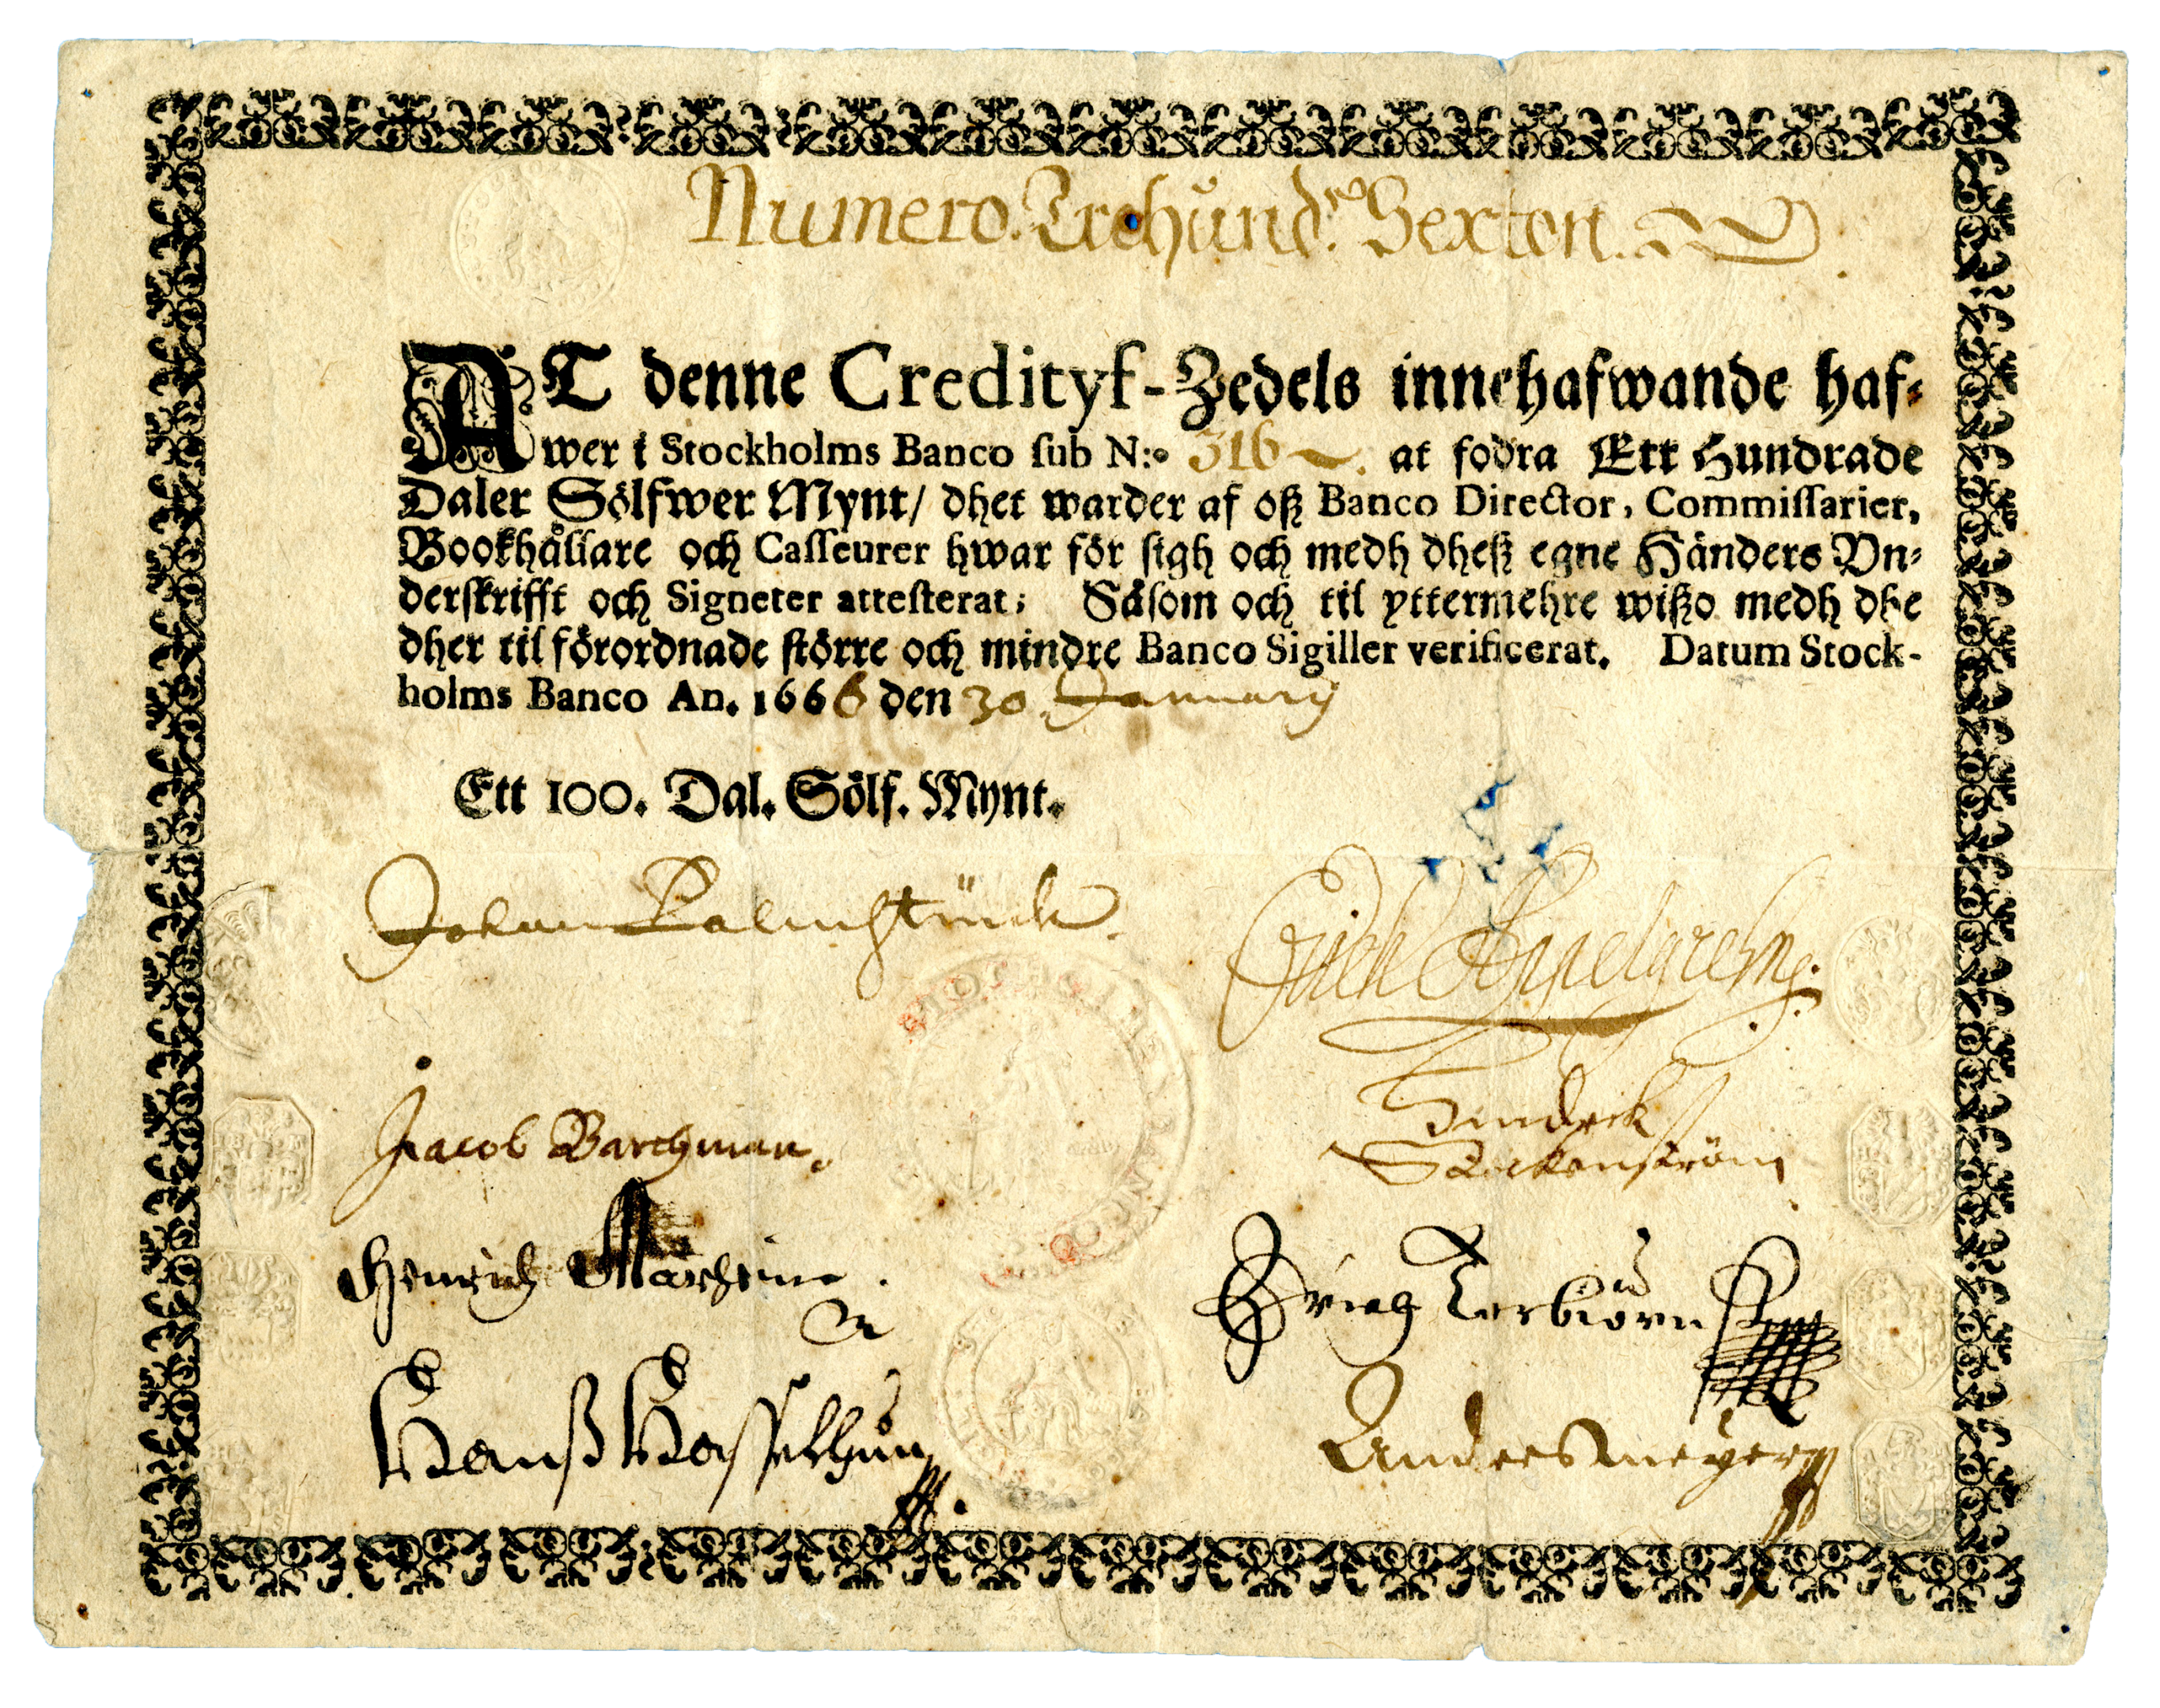 Numero. Trehund.^ra Sexton.
AT denne Credityf-Zedels innehafwande haf⸗
wer i Stockholms Banco ſub N:o 316 at fodra Ett Hundrade
Daler Sölfwer Mynt/ dhet warder af oß Banco Director, Commiſſarier,
Bookhållare och Caſſeurer hwar för ſigh och medh dheß egne Händers Vn⸗
derſkrifft och Signeter atteſterat; Såſom och til yttermehre wißo medh dhe
dher til förordnade ſtörre och mindre Banco Sigiller verificerat. Datum Stock-
holms Banco An. 1666 den 30 January
Ett 100. Dal. Sölf. Mynt.
Johan Palmstruck.
Jacob Barchman.
Hanß Hasselhun
Anders meyer